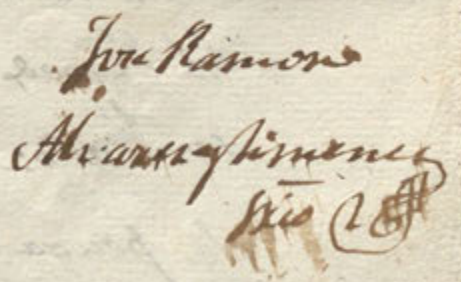 Jose Ramon
Alvarez y Ximenez
Srio